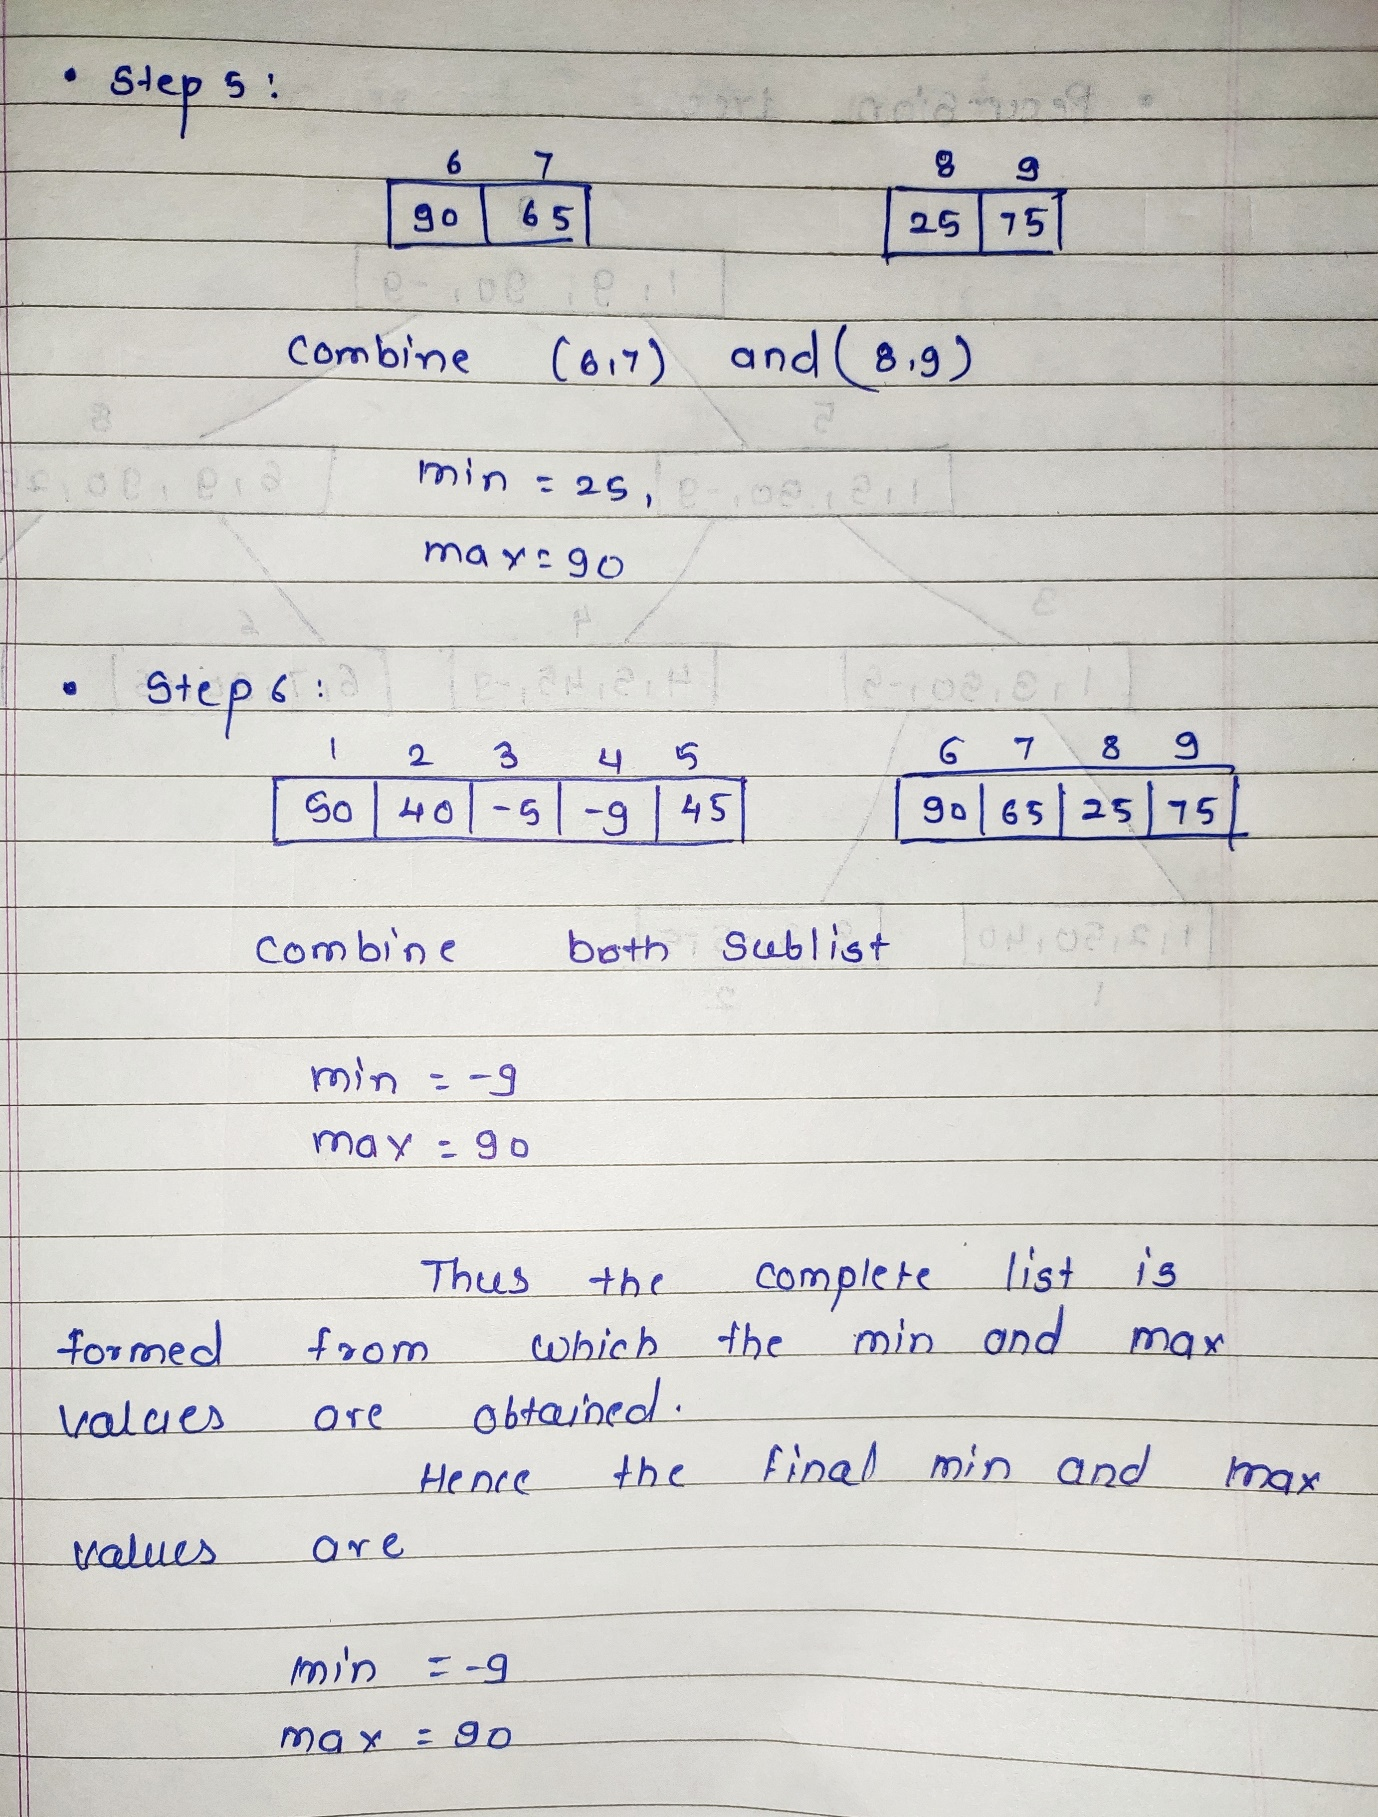 • Step 5:
6 7 8 9
90 65 25 75
Combine (6,7) and (8,9)
min = 25,
max = 90
• Step 6:
1 2 3 4 5 6 7 8 9
50 40 -5 -9 45 90 65 25 75
Combine both Sublist
min = -9
max = 90
Thus the complete list is
formed from which the min and max
values are obtained.
Hence the final min and max
values are
min = -9
max = 90